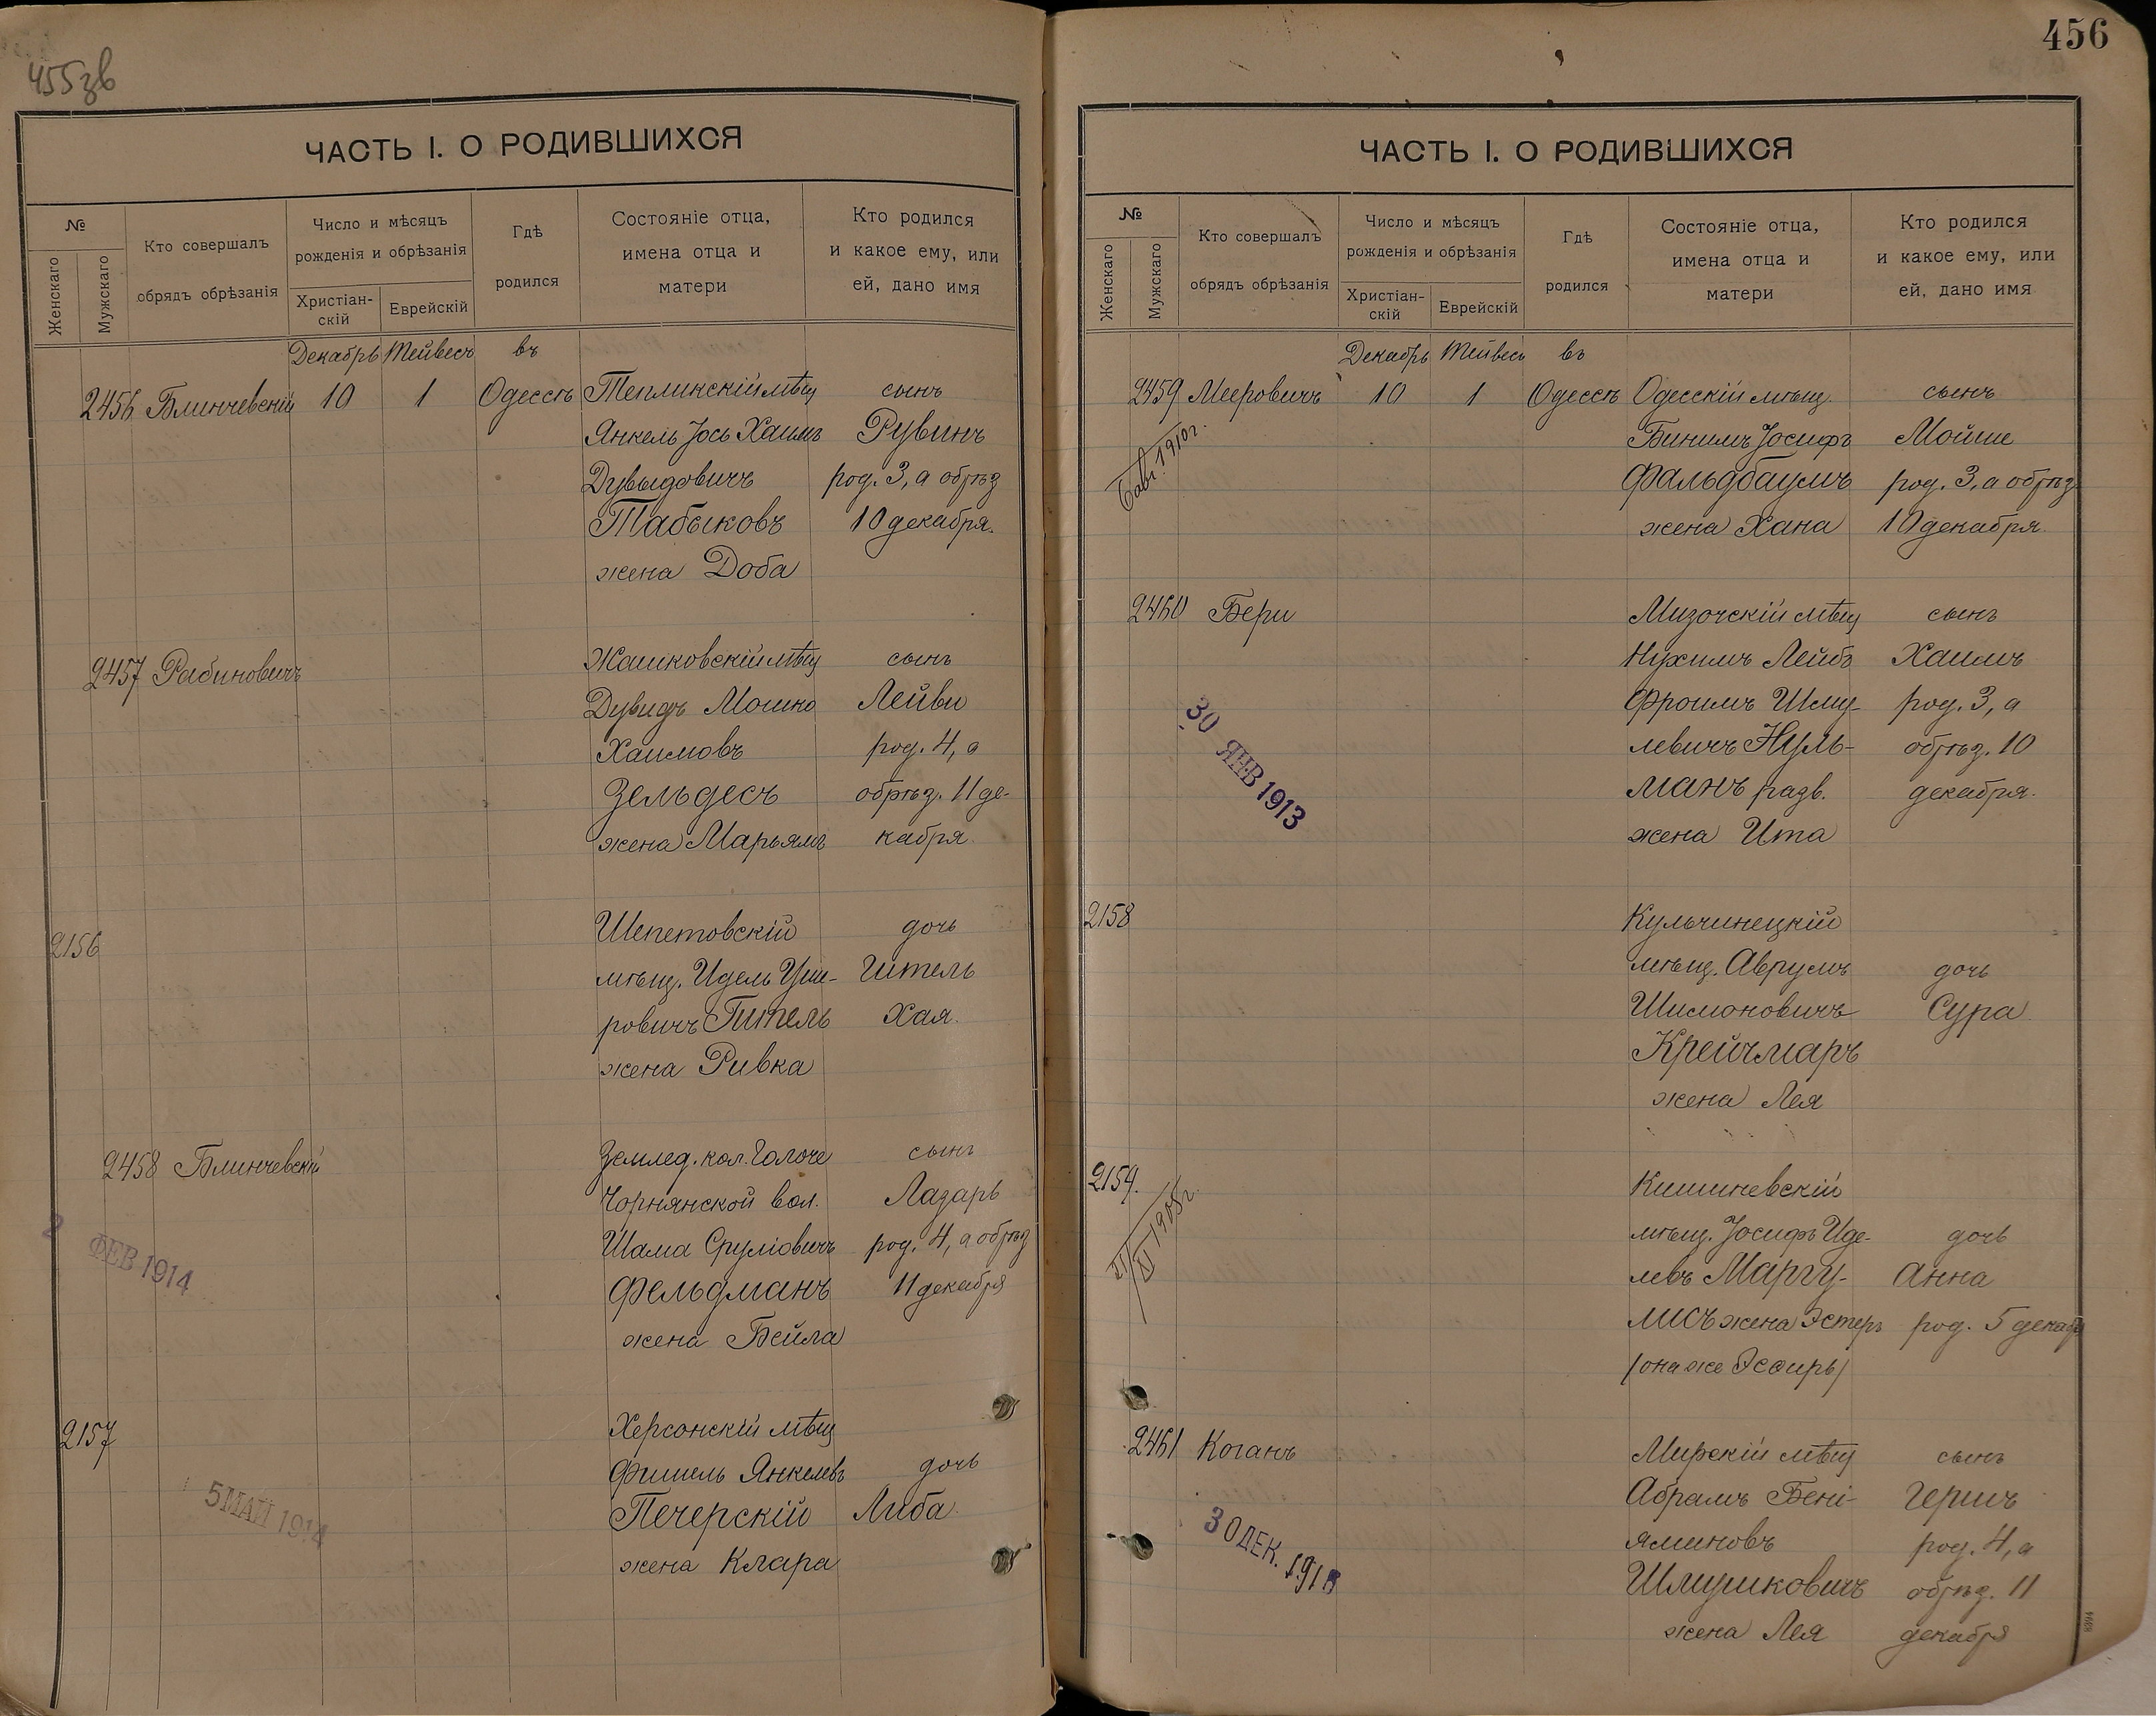 455зв
ЧАСТЬ I. О РОДИВШИХСЯ
№
Женскаго
Мужскаго
Кто совершалъ
обрядъ обрѣзанія
Число и мѣсяцъ
рожденія и обрѣзанія
Христіан-
скій
Еврейскій
Гдѣ
родился
Состояніе отца,
имена отца и
матери
Кто родился
и какое ему, или
ей, дано имя
Декабрь Тейвесъ въ
2456 Блинчевскій 10 1 Одессѣ Теплинскій мѣщ сынъ
Янкель Іось Хаимъ Рувинъ
Дувыдовичъ род. 3, а обрѣз
Табыковъ 10 декабря.
жена Доба
2457 Рабиновичъ Жашковскій мѣщ сынъ
Дувидъ Мошко Лейви
Хаимовъ род. 4, а
Зельдесъ обрѣз. 11 де-
жена Марьямъ кабря
2156 Шепетовскій дочь
мѣщ. Идель Уше- Шитель
ровичъ Гитель Хая.
жена Ривка
2458 Блинчевскій Землед. кол. сынъ
Чорнянской вол. Лазарь
Шама Сруліовичъ род. 4, а обрѣз
Фельдманъ 11 декабря
жена Бейла
2 ФЕВ 1914
2157 Херсонскій мѣщ
Фишель Янкелевъ дочь
Печерскій Либа
жена Клара
5 МАЙ 1914
456
ЧАСТЬ I. О РОДИВШИХСЯ
№
Женскаго
Мужскаго
Кто совершалъ
обрядъ обрѣзанія
Число и мѣсяцъ
рожденія и обрѣзанія
Христіан-
скій
Еврейскій
Гдѣ
родился
Состояніе отца,
имена отца и
матери
Кто родился
и какое ему, или
ей, дано имя
Декабрь Тейвесъ въ
2459 Мееровичъ 10 1 Одессѣ Одесскій мѣщ. сынъ
Бинимъ Іосифъ Мойше
Фальдбаумъ род. 3, а обрѣз
жена Хана 10 декабря
1910 г.
2460 Бери Мизочскій мѣщ сынъ
Нухимъ Лейбъ Хаимъ
Фроимъ Шму- род. 3, а
левичъ Нуль- обрѣз. 10
манъ разв. декабря.
жена Ита
30 ЯНВ 1913
2158 Кульчинецкій
мѣщ. Аврумъ дочь
Шимоновичъ Сура
Крейчмаръ
жена Лея
2159. Кишиневскій
мѣщ. Іосифъ Иде- дочь
левъ Маргу- Анна
лисъ жена Эстеръ род. 5 декабр
(она же Эсѳирь)
1908 г.
2461 Коганъ Мирскій мѣщ сынъ
Абрамъ Бені- Гершъ
яминовъ род. 4, а
Шмушковичъ обрѣз. 11
жена Лея декабря
30 ДЕК.